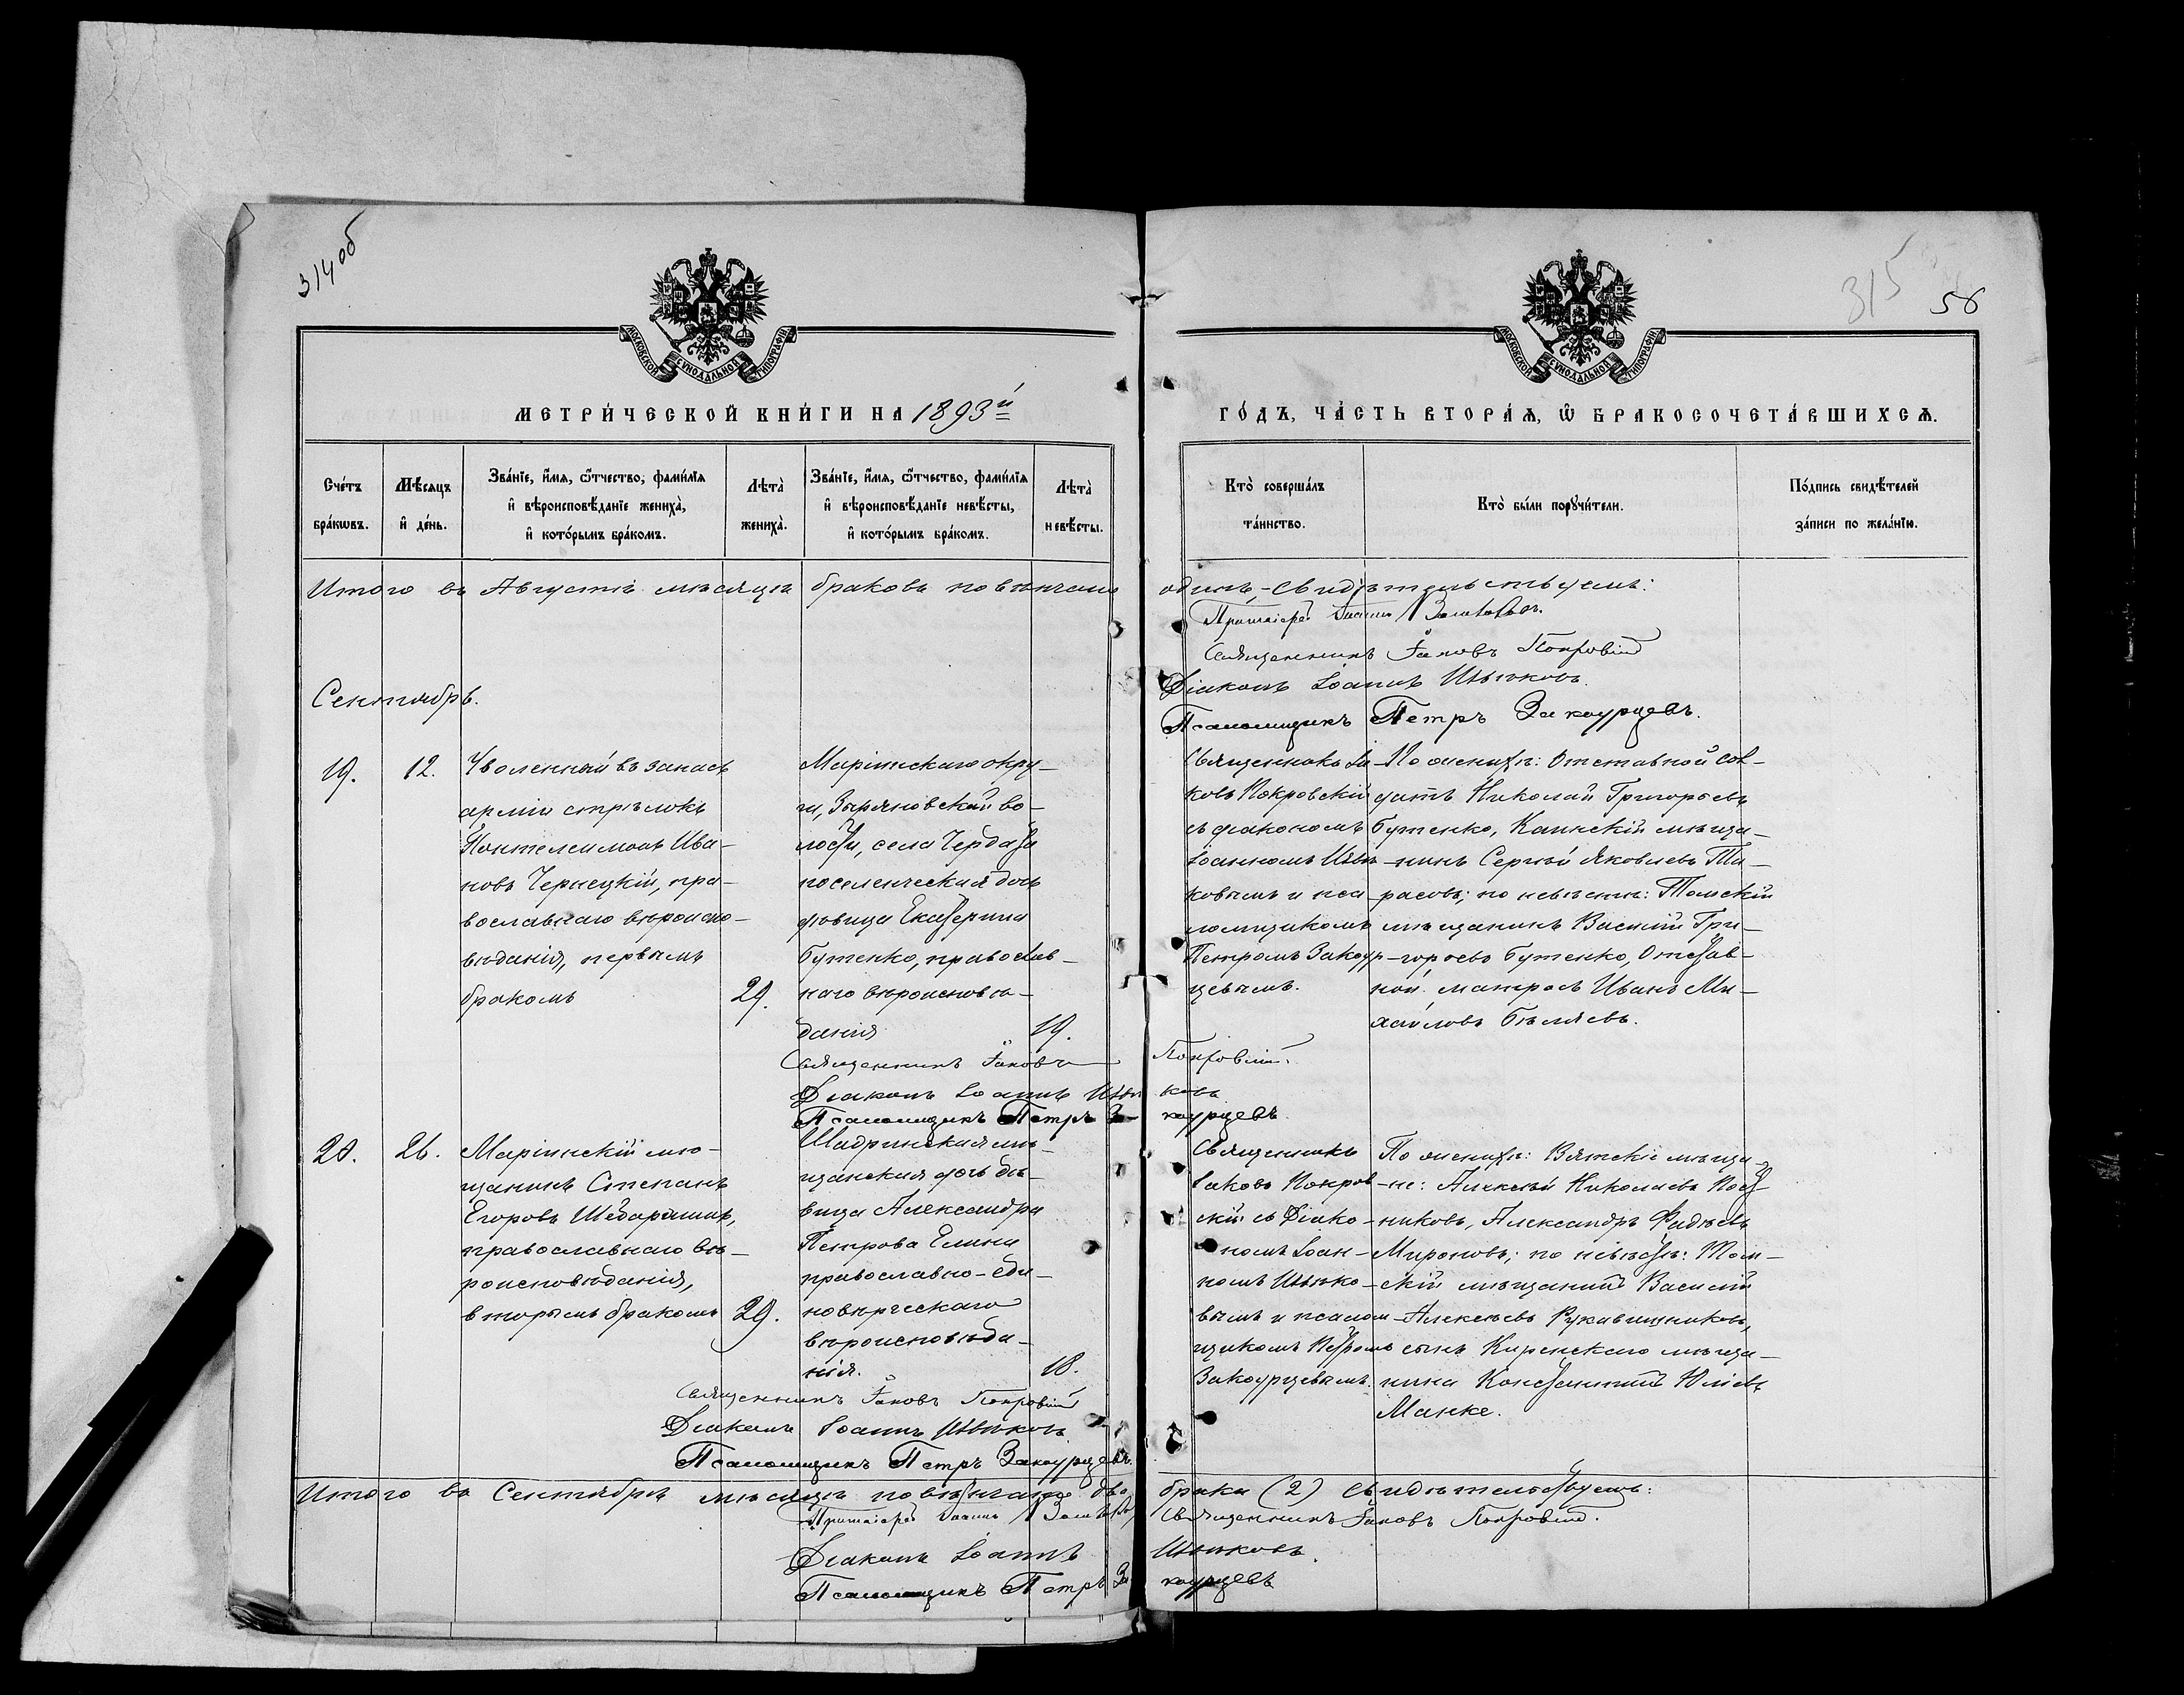 314 об
315
56
МОСКОВСКОЙ СѴНОДАЛЬНОЙ ТИПОГРАФІИ
МОСКОВСКОЙ СѴНОДАЛЬНОЙ ТИПОГРАФІИ
МЕТРИ́ЧЕСКОЙ КНИ́ГИ НА 1893й
ГО́ДЪ, ЧА́СТЬ ВТОРА́Ѧ, Ѿ БРАКОСОЧЕТА́ВШИХСѦ.
Сче́тъ
бра́кѡвъ.
Мѣ́сѧцъ
и҆ де́нь.
Зва́нїе, и҆́мѧ, ѻ҆́тчество, фами́лїѧ
и҆ вѣроисповѣ́данїе жениха̀,
и҆ кото́рымъ бра́комъ.
Лѣта̀
жениха̀.
Зва́нїе, и҆́мѧ, ѻ҆́тчество, фами́лїѧ
и҆ вѣроисповѣ́данїе невѣ́сты,
и҆ кото́рымъ бра́комъ.
Лѣта̀
невѣ́сты.
Кто̀ соверша́лъ
та́инство.
Кто̀ бы́ли порꙋчи́тели.
По́дпись свидѣ́телей
за́писи по жела́нїю.
Итого въ Августѣ мѣсяцѣ браковъ повѣнчано одинъ,-свидѣтельствуемъ:
Протоіерей Іоаннъ
Священникъ Іаковъ Покровскій
Діаконъ Іоаннъ Ивынковъ.
Псаломщикъ Петръ Закоурцевъ.
Сентябрь.
19.
12.
Уволенный въ запасъ
арміи стрѣлокъ
Понтелеимонъ Ива-
новъ Чернецкій, пра-
вославнаго вѣроиспо-
вѣданія, первымъ
бракомъ
29.
Маріинскаго окру-
га, Зыряновской во-
лости, села Чердаты
поселенческая дочь
дѣвица Екатерина
Бутенко, православ-
наго вѣроисповѣ-
данія
19.
Священникъ Іа-
ковъ Покровскій
съ діакономъ
Іоанномъ Ивын-
ковымъ и пса-
ломщикомъ
Петромъ Закоур-
цевымъ.
По женихѣ: Отставной сол-
датъ Николай Григорьевъ
Бутенко, Каинскій мѣща-
нинъ Сергѣй Яковлевъ Та-
расовъ; по невѣстѣ: Томскій
мѣщанинъ Василій Гри-
горьевъ Бутенко, Отстав-
ной матросъ Иванъ Ми-
хайловъ Бѣляевъ.
Священникъ Іаковъ Покровскій.
Діаконъ Іоаннъ Ивынковъ
Псаломщикъ Петръ Закоурцевъ
20.
26.
Маріинскій мѣ-
щанинъ Степанъ
Егоровъ
православнаго вѣ-
роисповѣданія,
вторымъ бракомъ
29.
Шадринская мѣ-
щанская дочь дѣ-
вица Александра
Петрова Елина
православно-еди-
новѣрческаго
вѣроисповѣда-
нія.
18.
Священникъ
Іаковъ Покров-
скій съ Діако-
номъ Іоан-
номъ Ивынко-
вымъ и псалом-
щикомъ Петромъ
Закоурцевымъ.
По женихѣ: Вятскіе мѣща-
не: Алексѣй Николаевъ
Александръ Фадѣевъ
Мироновъ; по невѣстѣ: Том-
скій мѣщанинъ Василій
Алексѣевъ Рукавишниковъ,
сынъ Киренскаго мѣща-
нина Константинъ Юліевъ
Манке.
Священникъ Іаковъ Покровскій
Діаконъ Іоаннъ Ивынковъ
Псаломщикъ Петръ Закоурцевъ.
Итого въ Сентябрѣ мѣсяцѣ повѣнчано два брака (2) свидѣтельствуемъ:
Протоіерей Іоаннъ
Священникъ Іаковъ Покровскій.
Діаконъ Іоаннъ Ивынковъ.
Псаломщикъ Петръ Закоурцевъ